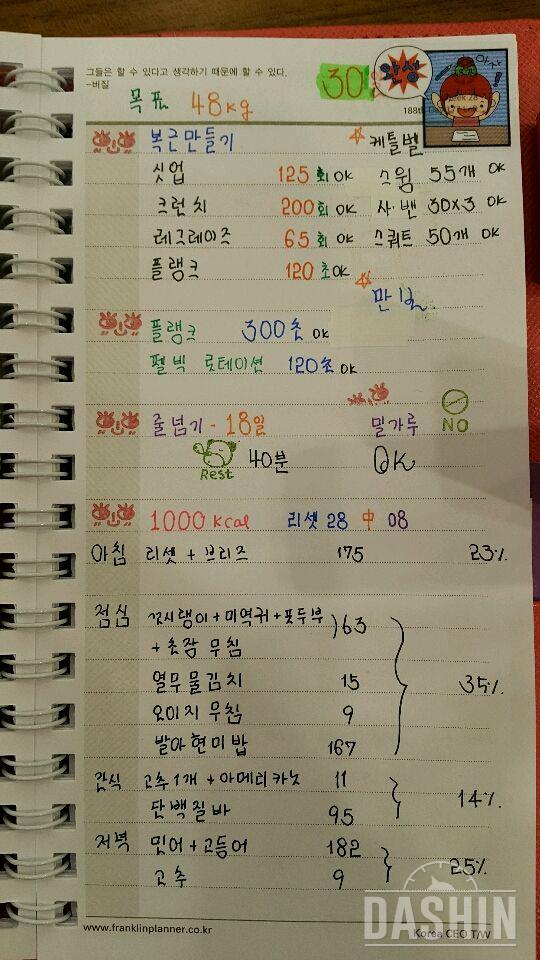 그들은 할 수 있다고 생각하기 때문에 할 수 있다.
-버질
30일 완성 아자!
목표 48kg
188th
복근만들기 ☆ 케틀벨
싯업 125회 OK 스윙 55개 OK
크런치 200회 OK 사·밴 30x3 OK
레그레이즈 65회 OK 스쿼트 50개 OK
플랭크 120초 OK
플랭크 300초 OK
펠빅 로테이션 120초 OK
줄넘기 - 18일 밀가루 NO
Rest 40분 OK
1000 kcal 리셋 28 中 08
아침 리셋 + 브리즈 175 23%
점심 꼬시댕이 + 미역귀 + 풋두부
+ 초장 무침 )63
열무물김치 15 35%
오이지무침 9
발아현미밥 167
간식 고추1개 + 아메리카노 11 14%
단백질바 95
저녁 민어 + 고등어 182 25%
고추 9
www.franklinplanner.co.kr
Korea CEO T/W
DASHIN